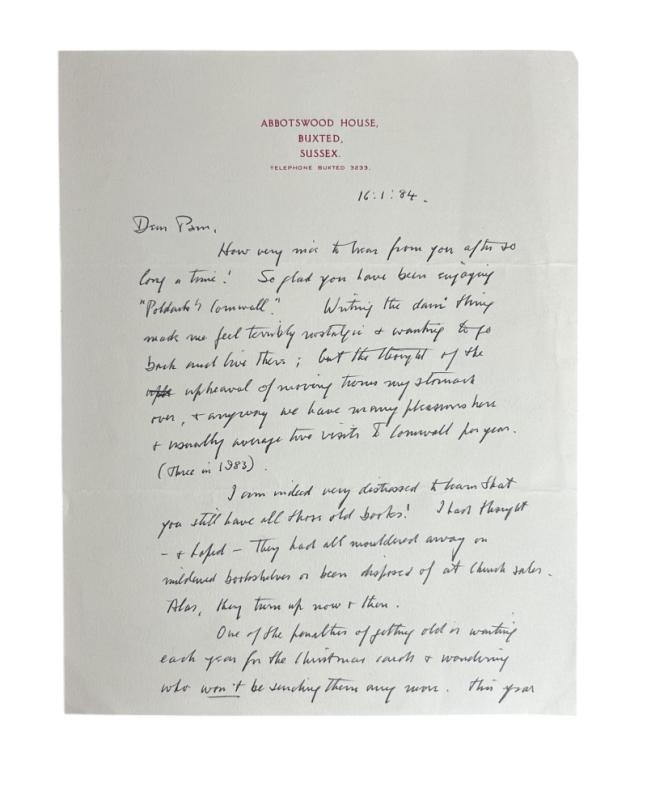 ABBOTSWOOD HOUSE,
BUXTED,
SUSSEX.
TELEPHONE BUXTED 3233.
16:1:84.
Dear Pam,
How very nice to hear from you after so
long a time! So glad you have been enjoying
"Poldark's Cornwall." Writing the damn thing
made me feel terribly nostalgic & wanting to go
back and live there; but the thought of the
upheaval of moving turns my stomach
over, & anyway we have so many pleasures here
& usually average two visits to Cornwall per year.
(Three in 1983).
I am indeed very distressed to learn that
you still have all those old books! I had thought
- & hoped - they had all mouldered away on
mildewed bookshelves or been disposed of at Church sales.
Alas, they turn up now & then.
One of the penalties of getting old is waiting
each year for the Christmas cards & wondering
who won't be sending them any more. This year